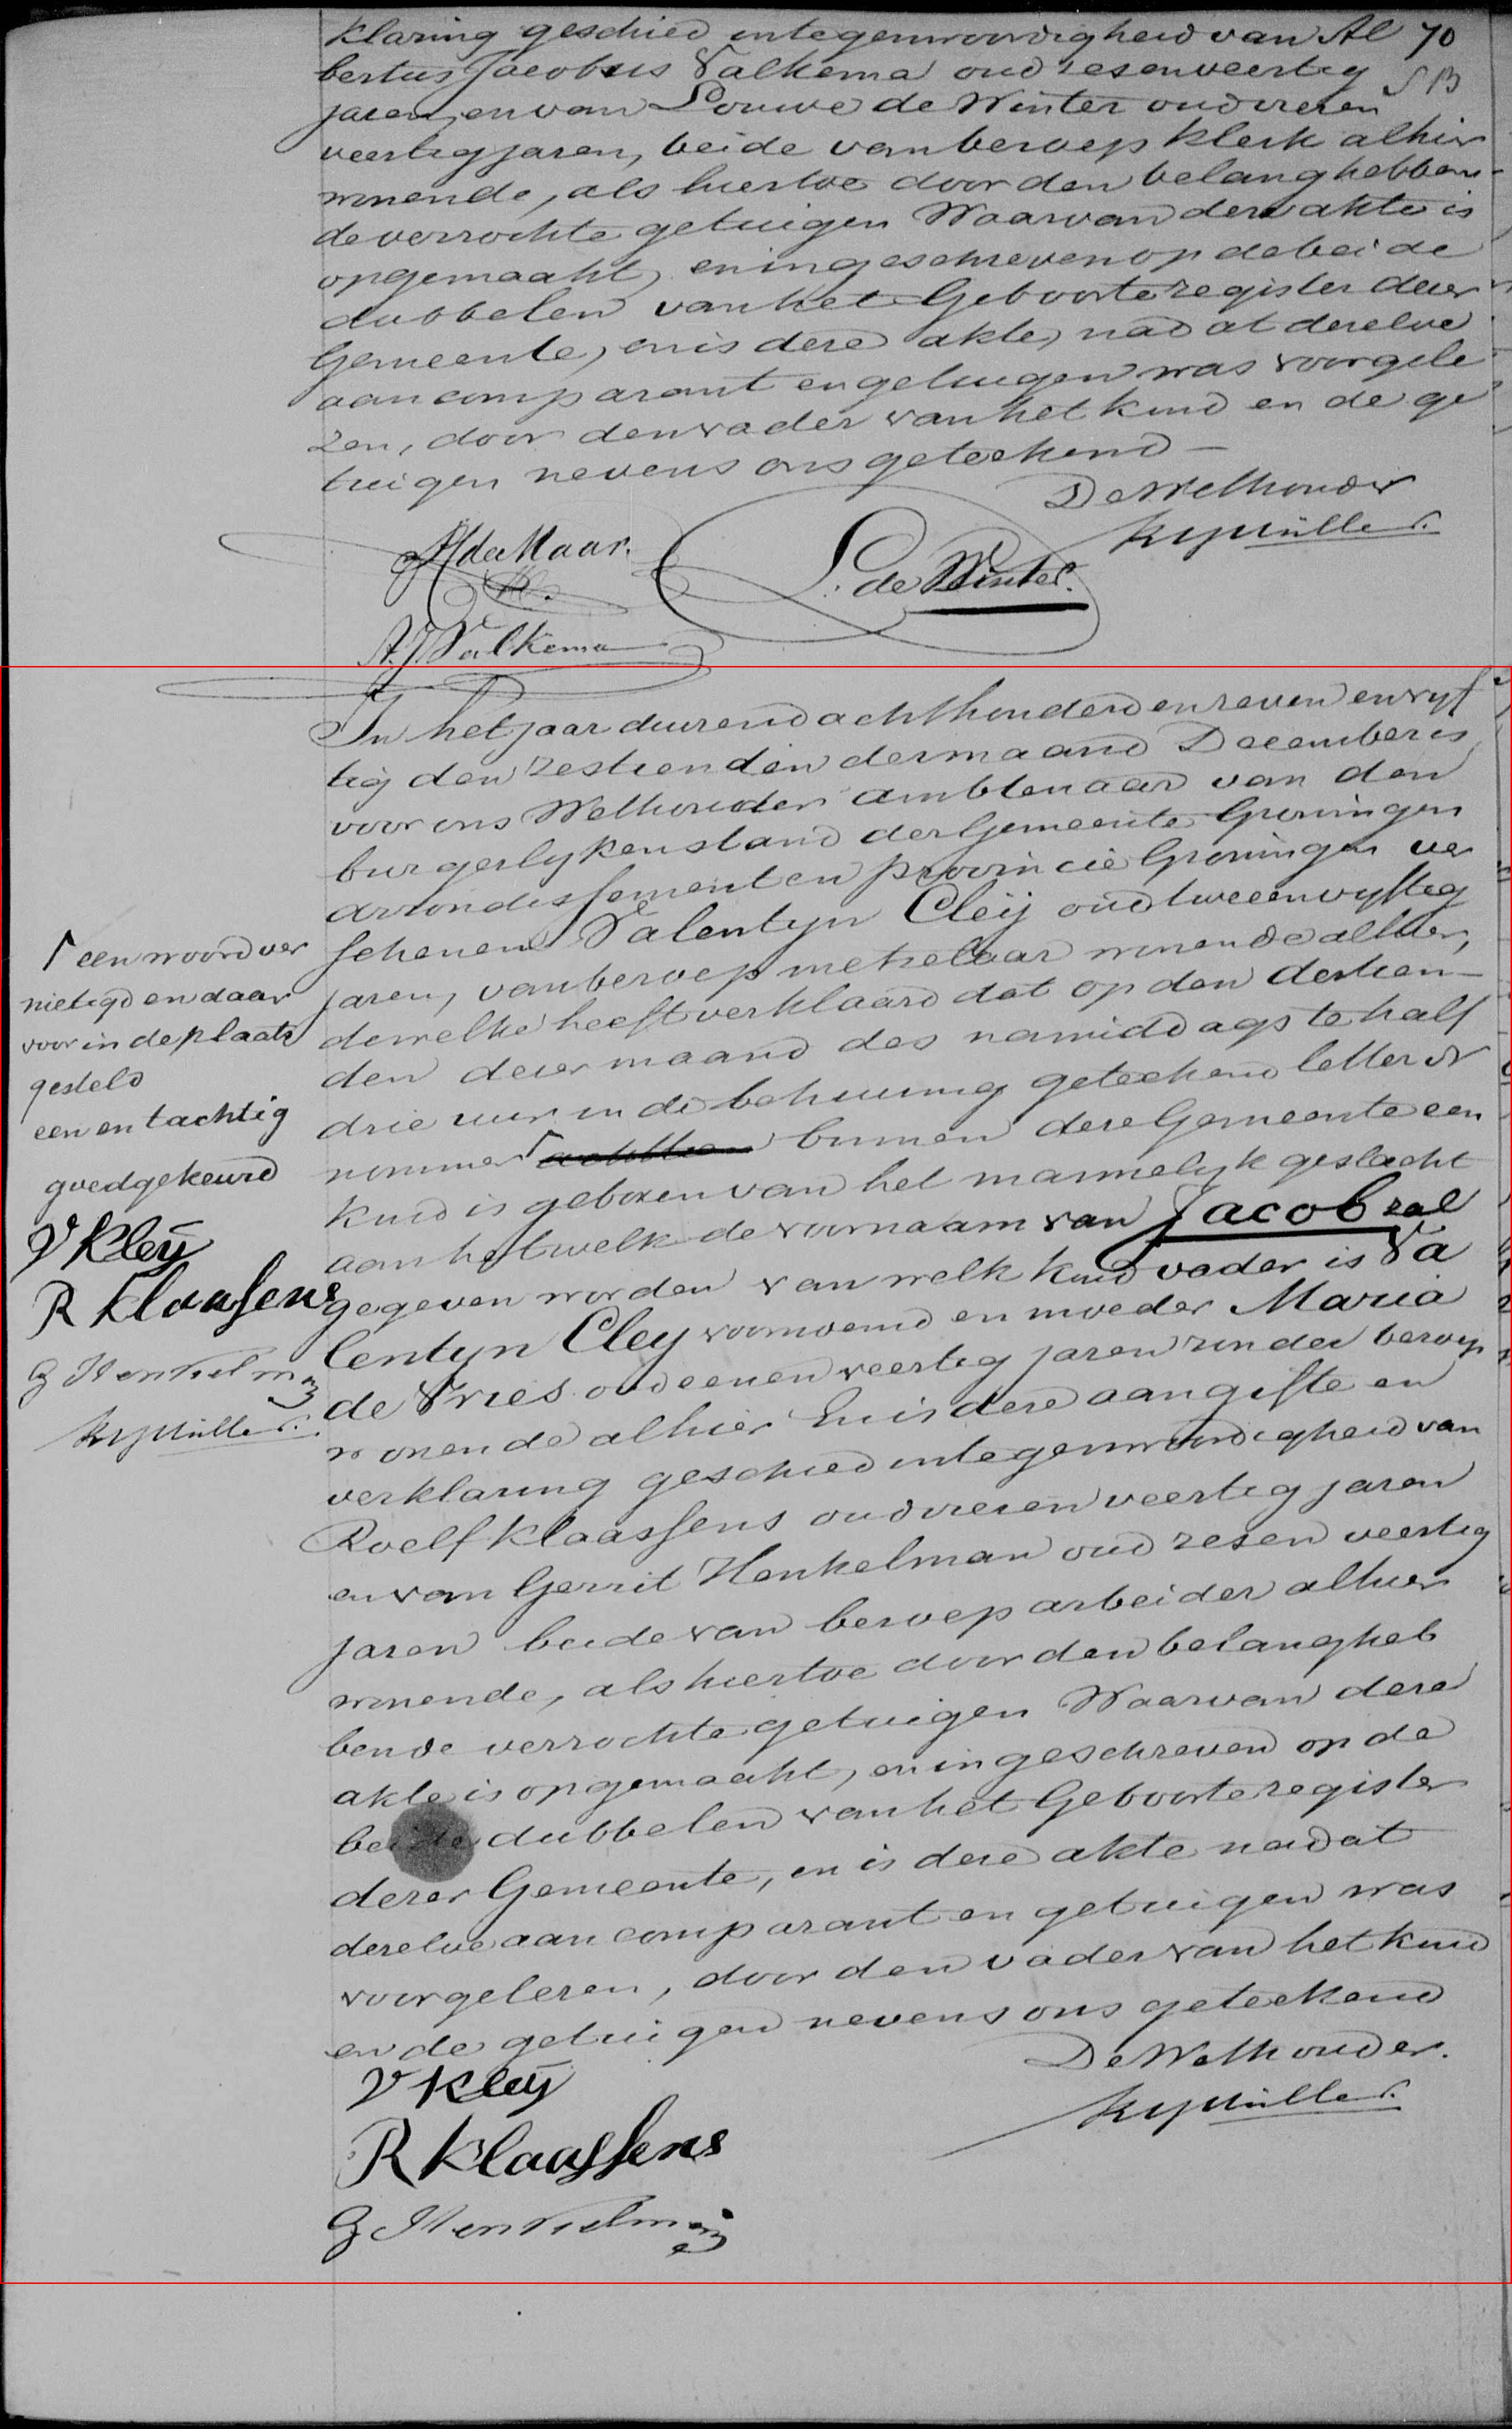 klaring geschied in tegenwoordigheid van Al 70
bertus Jacobus Valkema oud zesenveertig SB
jaren, en van Louwe de Winter oud vieren
veertig jaren, beide van beroep klerk alhier
wonende, als hiertoe door den belanghebben-
de verzochte getuigen Waarvan deze akte is
opgemaakt, en ingeschreven op de beide
dubbelen van het Geboorteregister dezer
Gemeente, en is deze akte, nadat dezelve
aan comparant en getuigen was voorgele
zen, door den vader van het kind en de ge
tuigen nevens ons geteekend —
De Wethouder
AH de Maar.
L. de Winter.
A.J. Valkema
In het jaar duizend achthonderd en zeven en vyf
tig den zestienden der maand December is
voor ons Wethouder ambtenaar van den
burgerlyken stand der Gemeente Groningen
arrondissement en provincie Groningen ver
schenen Valentyn Cleÿ oud twee en vyftig
jaren, van beroep metselaar wonende alhier,
dewelke heeft verklaard dat op den dertien-
den dezer maand des namiddags te half
drie uur in de behuizing geteekend letter N
nommer ┌ binnen deze Gemeente een
kind is geboren van het mannelyk geslacht
aan hetwelk de voornaam van Jacob zal
gegeven worden van welk kind vader is Va
lentyn Cley voornoemd en moeder Maria
de Vries oud een en veertig jaren zonder beroep
wonende alhier En is deze aangifte en
verklaring geschied in tegenwoordigheid van
Roelf Klaassens oud vieren veertig jaren
en van Gerrit Henkelman oud zesen veertig
jaren beide van beroep arbeider alhier
wonende, als hiertoe door den belangheb
bende verzochte getuigen Waarvan deze
akte is opgemaakt, en ingeschreven op de
beide dubbelen van het Geboorteregister
dezer Gemeente, en is deze akte nadat
dezelve aan comparant en getuigen was
voorgelezen, door den vader van het kind
en de getuigen nevens ons geteekend
De Wethouder.
V Kleÿ
Müller.
R Klaassens
G Henkelman
┌ een woord ver
nietigd en daar
voor in de plaats
gesteld
een en tachtig
goedgekeurd
V Kleÿ
R Klaassens
G Henkelman
Müller.